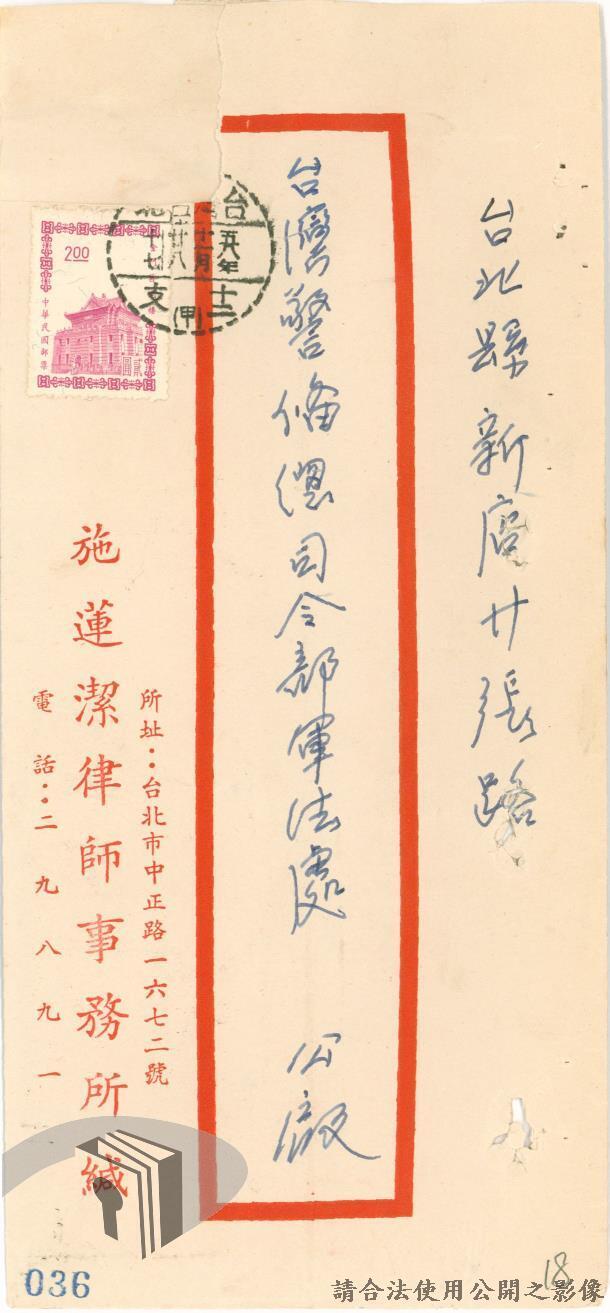 台北縣新店廿張路
台灣警備總司令部軍法處 公啟
2.00
中華民國郵票
貳圓
台北
五八年
十一月
廿八
十七支
(甲)
所址：台北市中正路一六七二號
施蓮潔律師事務所緘
電話：二九八九一
036
18
請合法使用公開之影像